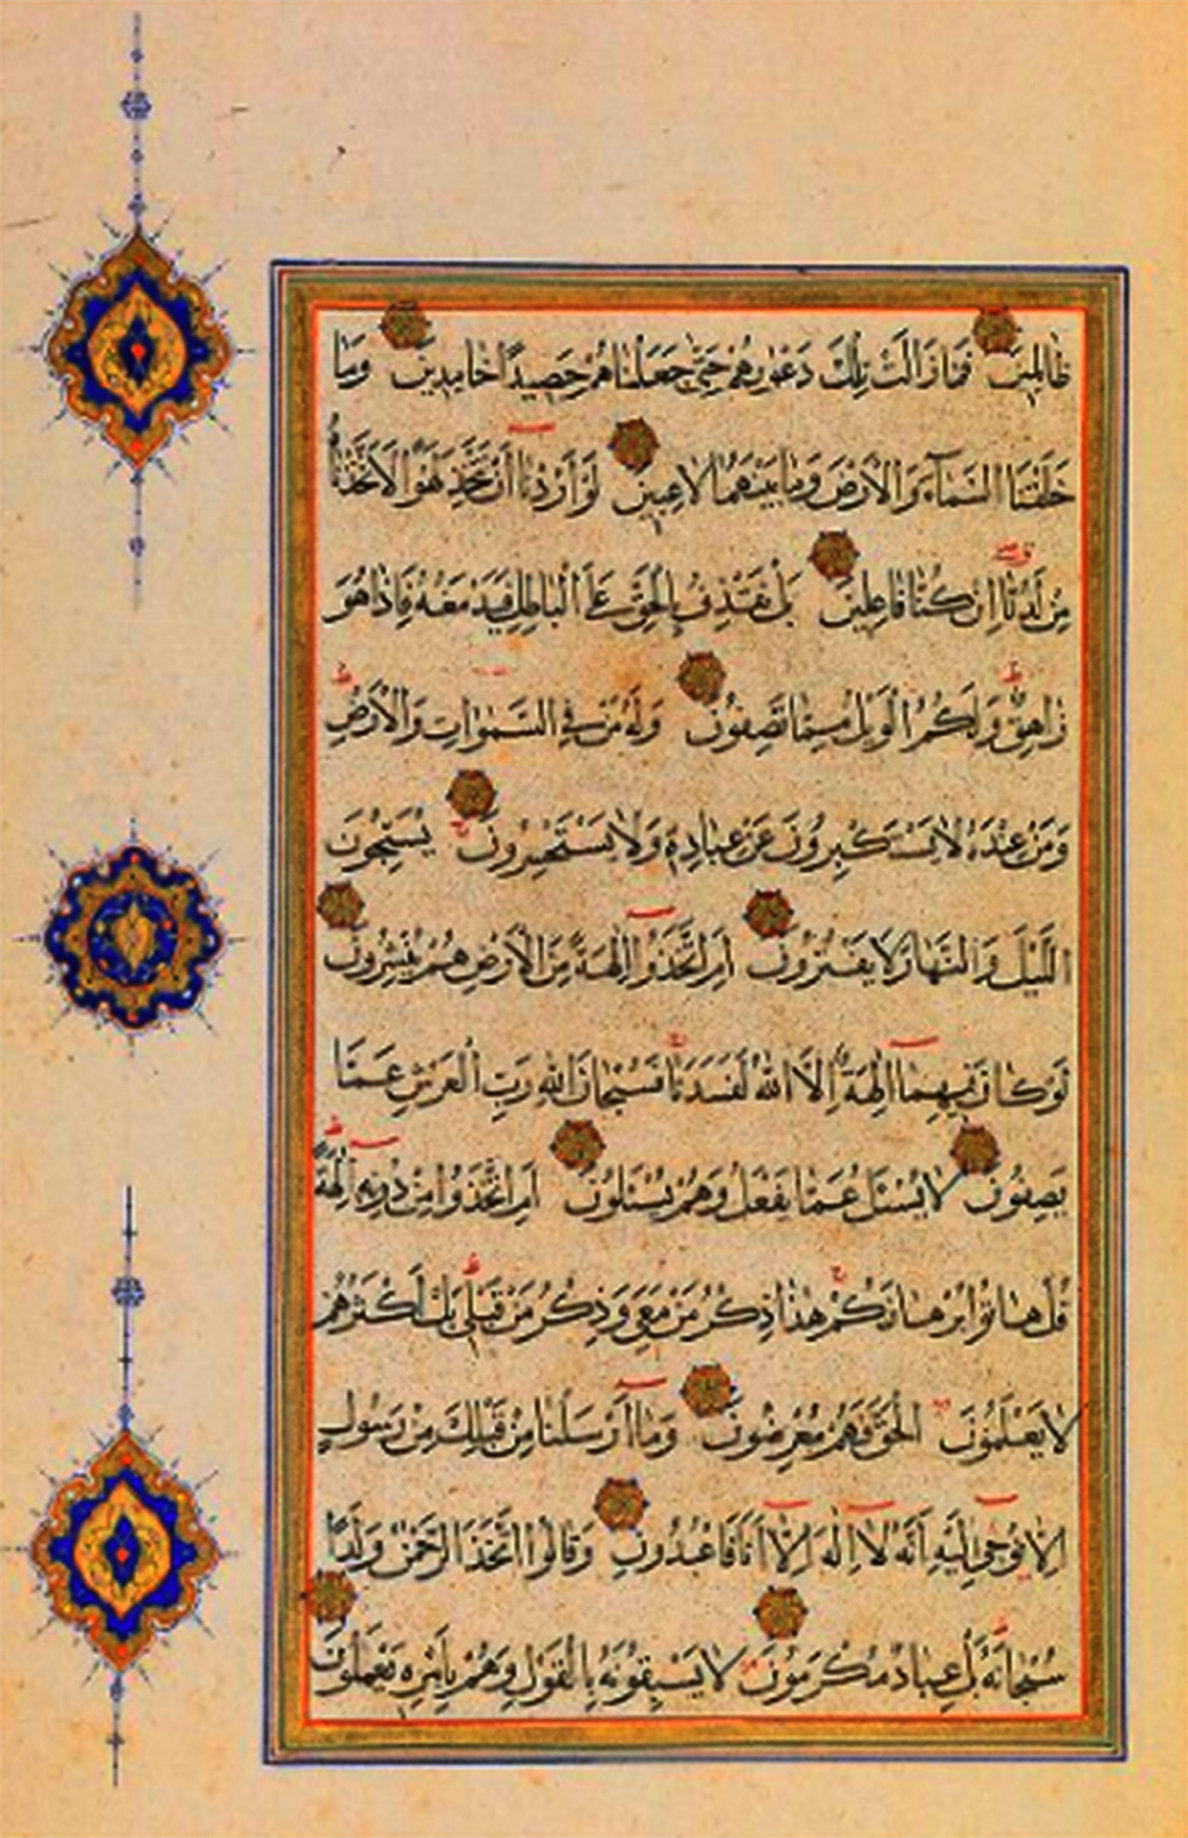 ظَالِمِينَ فَمَا زَالَتْ تِلْكَ دَعْوٰيهُمْ حَتّٰى جَعَلْنَاهُمْ حَصِيدًا خَامِدِينَ وَمَا
خَلَقْنَا السَّمَآءَ وَالْاَرْضَ وَمَا بَيْنَهُمَا لَاعِبِينَ لَوْ اَرَدْنَا اَنْ نَتَّخِذَ لَهْوًا لَاتَّخَذْنَاهُ
مِنْ لَدُنَّا اِنْ كُنَّا فَاعِلِينَ بَلْ نَقْذِفُ بِالْحَقِّ عَلَى الْبَاطِلِ فَيَدْمَغُهُ فَاِذَا هُوَ
زَاهِقٌ وَلَكُمُ الْوَيْلُ مِمَّا تَصِفُونَ وَلَهُ مَنْ فِي السَّمٰوَاتِ وَالْاَرْضِ
وَمَنْ عِنْدَهُ لَا يَسْتَكْبِرُونَ عَنْ عِبَادَتِهِ وَلَا يَسْتَحْسِرُونَ يُسَبِّحُونَ
اللَّيْلَ وَالنَّهَارَ لَا يَفْتُرُونَ اَمِ اتَّخَذُوا اٰلِهَةً مِنَ الْاَرْضِ هُمْ يُنْشِرُونَ
لَوْ كَانَ فِيهِمَا اٰلِهَةٌ اِلَّا اللّٰهُ لَفَسَدَتَا فَسُبْحَانَ اللّٰهِ رَبِّ الْعَرْشِ عَمَّا
يَصِفُونَ لَا يُسْئَلُ عَمَّا يَفْعَلُ وَهُمْ يُسْئَلُونَ اَمِ اتَّخَذُوا مِنْ دُونِهِ اٰلِهَةً
قُلْ هَاتُوا بُرْهَانَكُمْ هٰذَا ذِكْرُ مَنْ مَعِيَ وَذِكْرُ مَنْ قَبْلِي بَلْ اَكْثَرُهُمْ
لَا يَعْلَمُونَ الْحَقَّ فَهُمْ مُعْرِضُونَ وَمَا اَرْسَلْنَا مِنْ قَبْلِكَ مِنْ رَسُولٍ
اِلَّا نُوحِي اِلَيْهِ اَنَّهُ لَا اِلٰهَ اِلَّا اَنَا فَاعْبُدُونِ وَقَالُوا اتَّخَذَ الرَّحْمٰنُ وَلَدًا
سُبْحَانَهُ بَلْ عِبَادٌ مُكْرَمُونَ لَا يَسْبِقُونَهُ بِالْقَوْلِ وَهُمْ بِاَمْرِهِ يَعْمَلُونَ